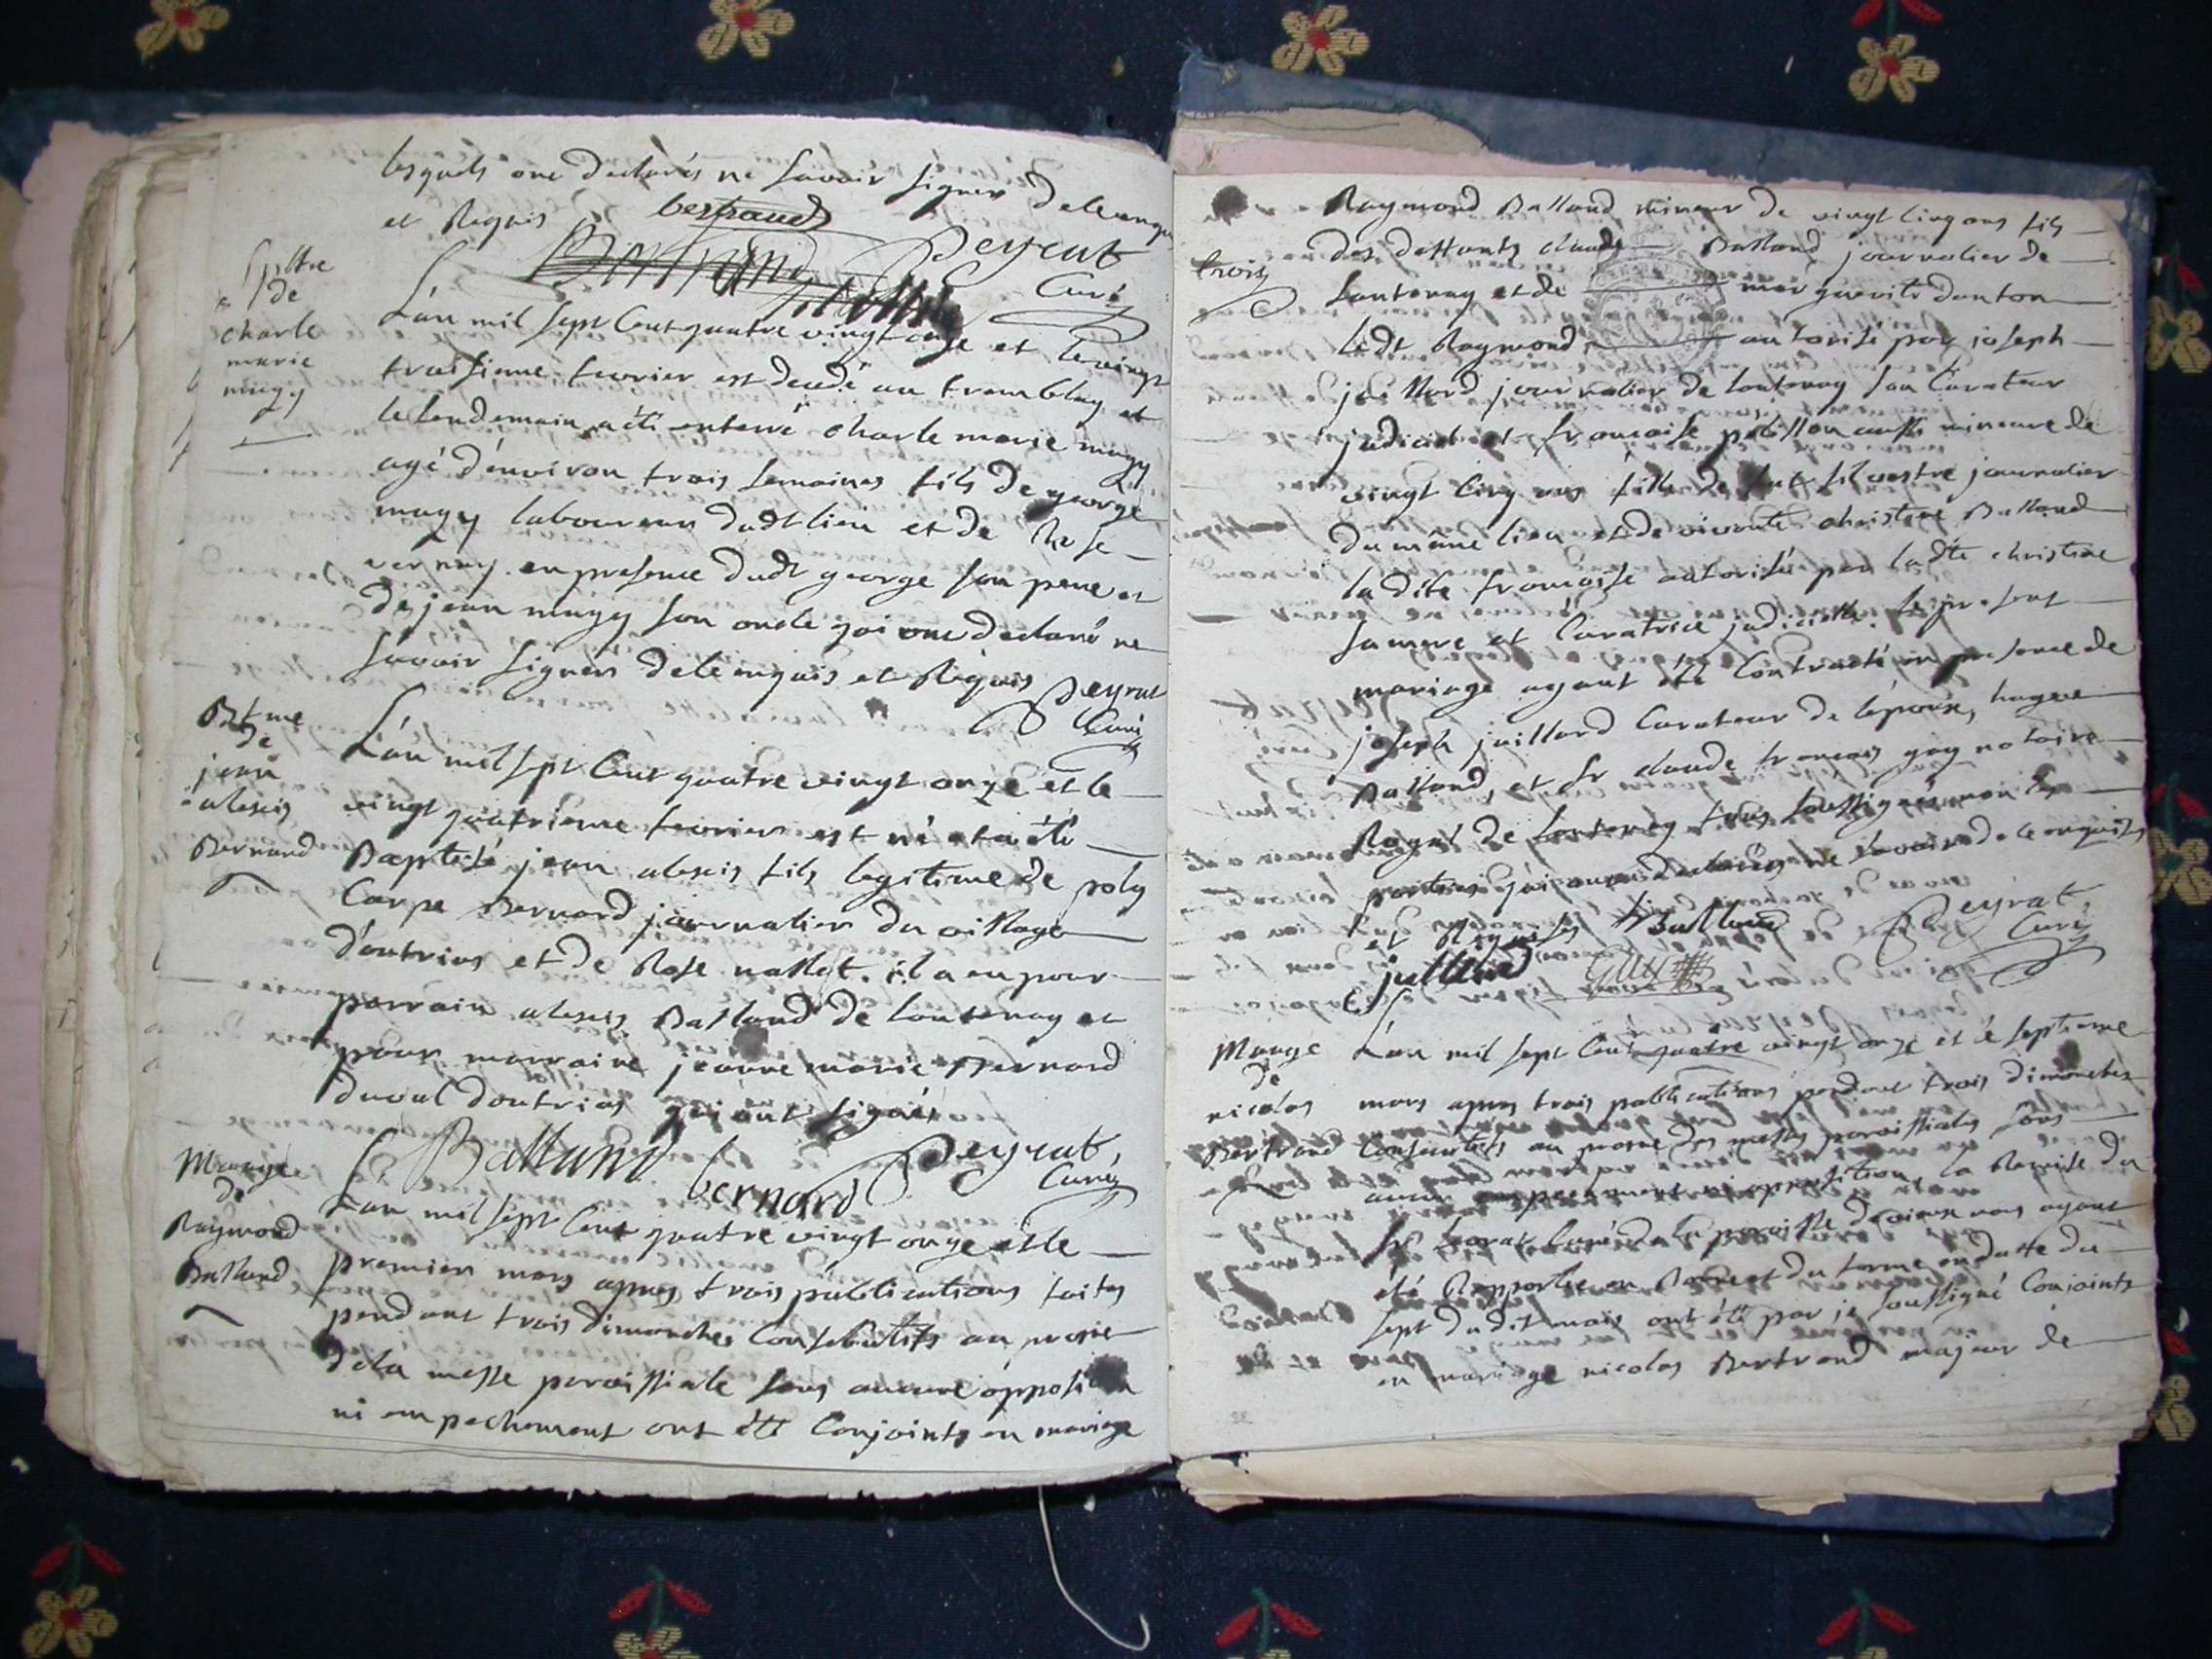 lesquels ont declarés ne savoir signer de ce enquis
et Requis bertrand
Bertrand Peyrat
Curé
Spltre
de
charle
marie
mugy
L'an mil sept Cent quatre vingt onze et le vingt
troisieme fevrier est decedé au tremblay et
le lendemain a été enterré charle marie mugy
agé d'environ trois semaines fils de george
mugy laboureur dudt lieu et de Rose
vernay en presence dudt george son pere et
de jean mugy son oncle qui ont declaré ne
savoir signer de ce enquis et Requis Peyrat
Curé
Btme
de
jean
alexis
Bernard
L'an mil sept Cent quatre vingt onze et le
vingt quatrieme fevrier est né et a été
Baptisé jean alexis fils legitime de poly
Carpe Bernard journalier du village
d'outrias et de Rose nallet. il a eu pour
parrain alexis Balland de lantenay et
pour marraine jeanne marie Bernard
duval doutrias qui ont signés
Balland bernard Peyrat,
Curé
Mariage
de
Raymond
Balland
L'an mil sept Cent quatre vingt onze et le
premier mars apres trois publications faites
pendant trois dimanches Consecutifs au prone
dela messe paroissiale sans aucune opposition
ni empechement ont été Conjoints en mariage
trois
Raymond Balland mineur de vingt cinq ans fils
des deffunts claude Balland journalier de
Lantenay et de marguerite danton
ledt Raymond autorisé par joseph
juillard journalier de lantenay son Curateur
judiciel et francoise polisson aussi mineure de
vingt cinq ans fille de feut silvestre journalier
du même lieu et de vivante christine Balland
ladite francoise autorisée par ladte christine
sa mere et Curatrice judicielle. le present
mariage ayant été Contracté en presence de
joseph juillard Curateur de l'époux, hugue
Balland, et sr claude francois guy notaire
Royal de lantenay tous soussignés non les
parties qui ont declarés ne savoir de ce enquises
et Requises Balland Peyrat,
Curé
juillard Guy
Mariage
de
nicolas
Bertrand
L'an mil sept Cent quatre vingt onze et le septieme
mars apres trois publications pendant trois dimanches
Consecutifs au prone des messes paroissiales sans
aucun empechement ni opposition, la Remise du
sr Curé de la paroisse de vieux nous ayant
été Rapportée en bonne et due forme en datte du
sept dudit mois ont été par je soussigné Conjoints
en mariage nicolas Bertrand majeur de